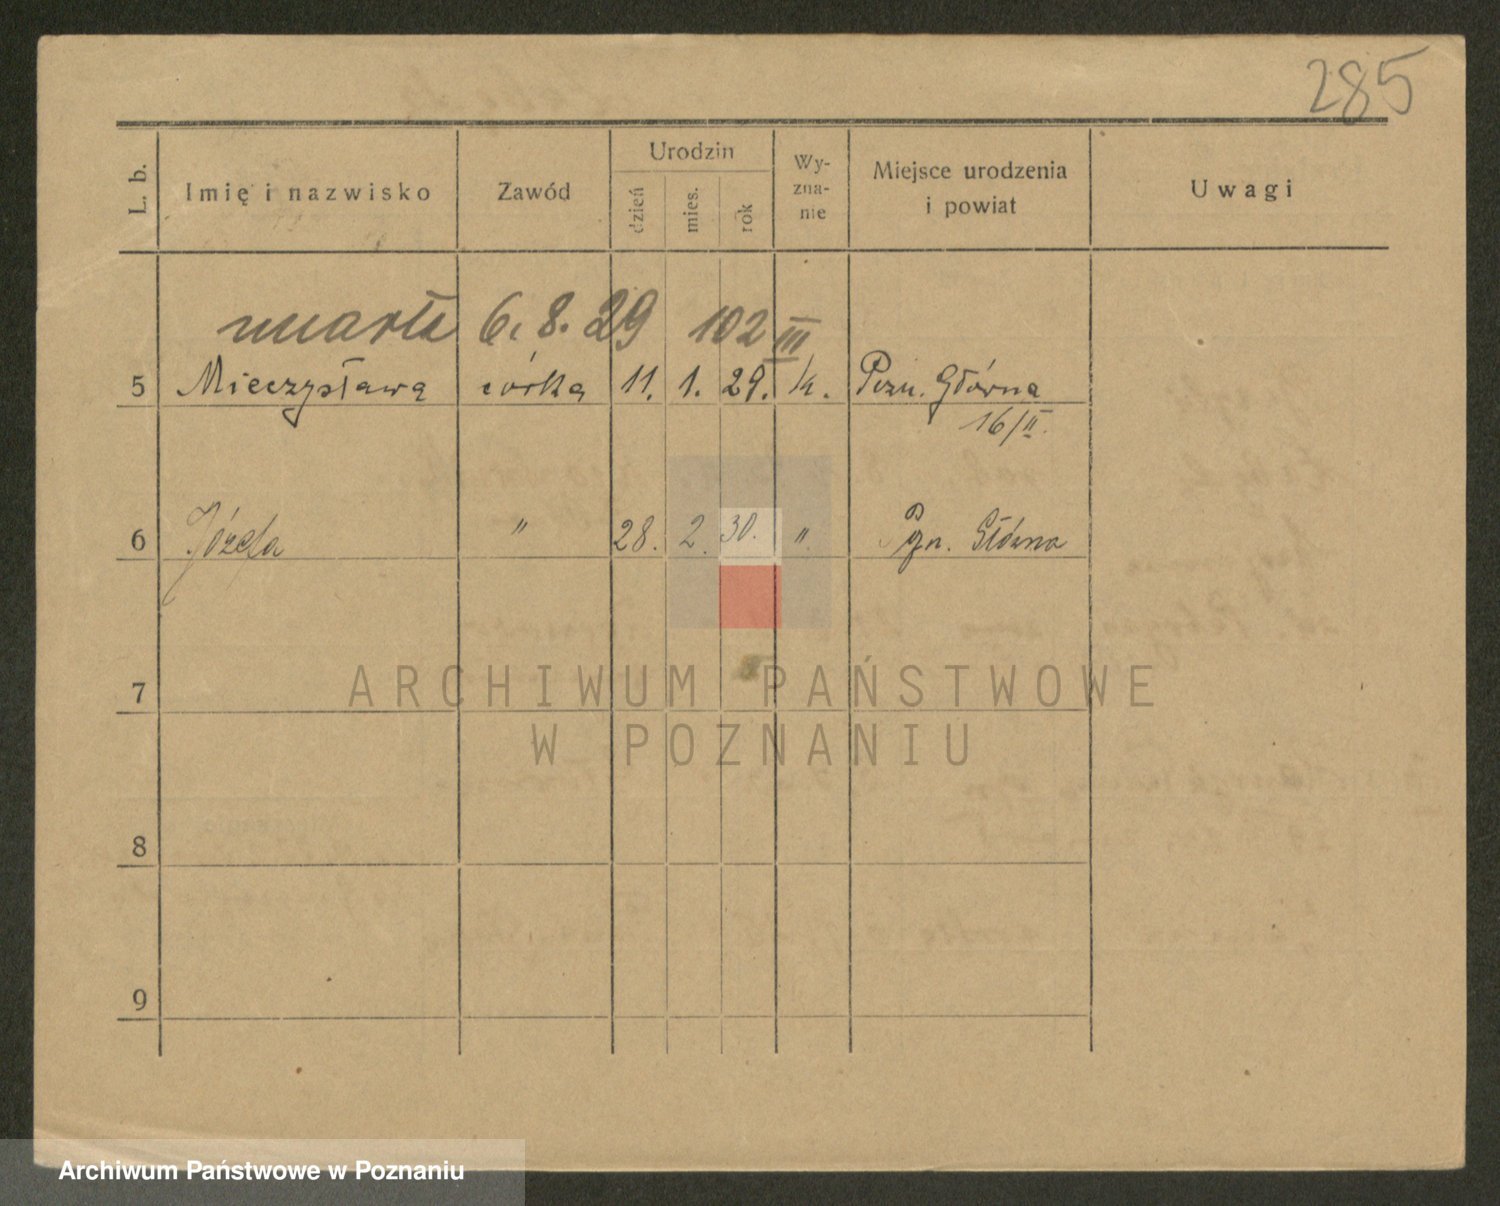 285
L. b.
Imię i nazwisko
Zawód
Urodzin
dzień
mies.
rok
Wy-
zna-
nie
Miejsce urodzenia
i powiat
Uwagi
umarła 6. 8. 29 102 III
5 Mieczysława córka 11. 1. 29. k. Pozn. Główna
16/II.
6 Józefa " 28. 2. 30. " Pzn. Główna
7
8
9
ARCHIWUM PAŃSTWOWE
W POZNANIU
Archiwum Państwowe w Poznaniu